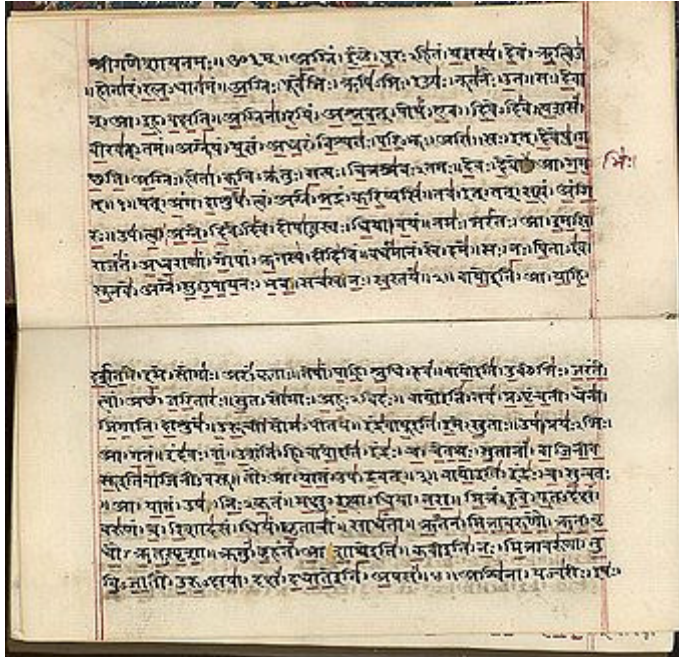 श्रीगणेशायनमः॥ॐ॥अग्निं।ईळे।पुरःऽहितं।यज्ञस्य।देवं।ऋत्विजं
॥होतारं।रत्नऽधातमं॥अग्निः।पूर्वेभिः।ऋषिऽभिः।ईड्यः।नूतनैः।उत॥सः।देवा
न्।आ।इह।वक्षति॥अग्निना।रयिं।अश्नवत्।पोषं।एव।दिवेऽदिवे॥यशसं
वीरवत्ऽतमं॥अग्ने।यं।यज्ञं।अध्वरं।विश्वतः।परिऽभूः।असि॥सः।इत्।देवेषु।ग
छति॥अग्निः।होता।कविऽक्रतुः।सत्यः।चित्रश्रवःऽतमः॥देवः।देवेभिः।आ।गम
त्॥१॥यत्।अंग।दाशुषे।त्वं।अग्ने।भद्रं।करिष्यसि॥तव।इत्।तत्।सत्यं।अंगि
रः॥उप।त्वा।अग्ने।दिवेऽदिवे।दोषाऽवस्तः।धिया।वयं॥नमः।भरंतः।आ।इमसि॥
राजंतं।अध्वराणां।गोपां।ऋतस्य।दीदिविं॥वर्धमानं।स्वे।दमे॥सः।नः।पिताऽइव
सूनवे।अग्ने।सुऽउपायनः।भव॥सचस्व।नः।स्वस्तये॥२॥वायोइति।आ।याहि।
भिः।
दर्शत।इमे।सोमाः।अरंऽकृताः॥तेषां।पाहि।श्रुधि।हवं॥वायोइति।उक्थेभिः।जरंते।
त्वां।अछ।जरितारः॥सुतऽसोमाः।अहःऽविदः॥वायोइति।तव।प्रऽपृंचती।धेना।
जिगाति।दाशुषे॥उरूची।सोमऽपीतये॥इंद्रवायूइति।इमे।सुताः।उप।प्रयःऽभिः।
आ।गतं॥इंदवः।वां।उशंति।हि॥वायोइति।इंद्रः।च।चेतथः।सुतानां।वाजिनीव
सूइतिवाजिनीऽवसू॥तौ।आ।यातं।उप।द्रवत्॥३॥वायोइति।इंद्रः।च।सुन्वतः
॥आ।यातं।उप।निःऽकृतं॥मक्षु।इत्था।धिया।नरा॥मित्रं।हुवे।पूतऽदक्षं।
वरुणं।च।रिशादसं॥धियं।घृताचीं।साधंता॥ऋतेन।मित्रावरुणौ।ऋतऽवृ
धौ।ऋतऽस्पृशा॥क्रतुं।बृहंतं।आशाथेइति॥कवीइति।नः।मित्रावरुणा।तु
विऽजातौ।उरुऽक्षया॥दक्षं।दधातेइति।अपसं॥४॥अश्विना।यज्वरीः।इषः।